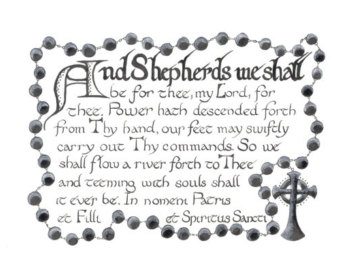 And Shepherds we shall
be for thee, my Lord, for
thee. Power hath descended forth
from Thy hand, our feet may swiftly
carry out Thy commands. So we
shall flow a river forth to Thee
and teeming with souls shall
it ever be. In nomeni Patris
et Filli et Spiritus Sancti